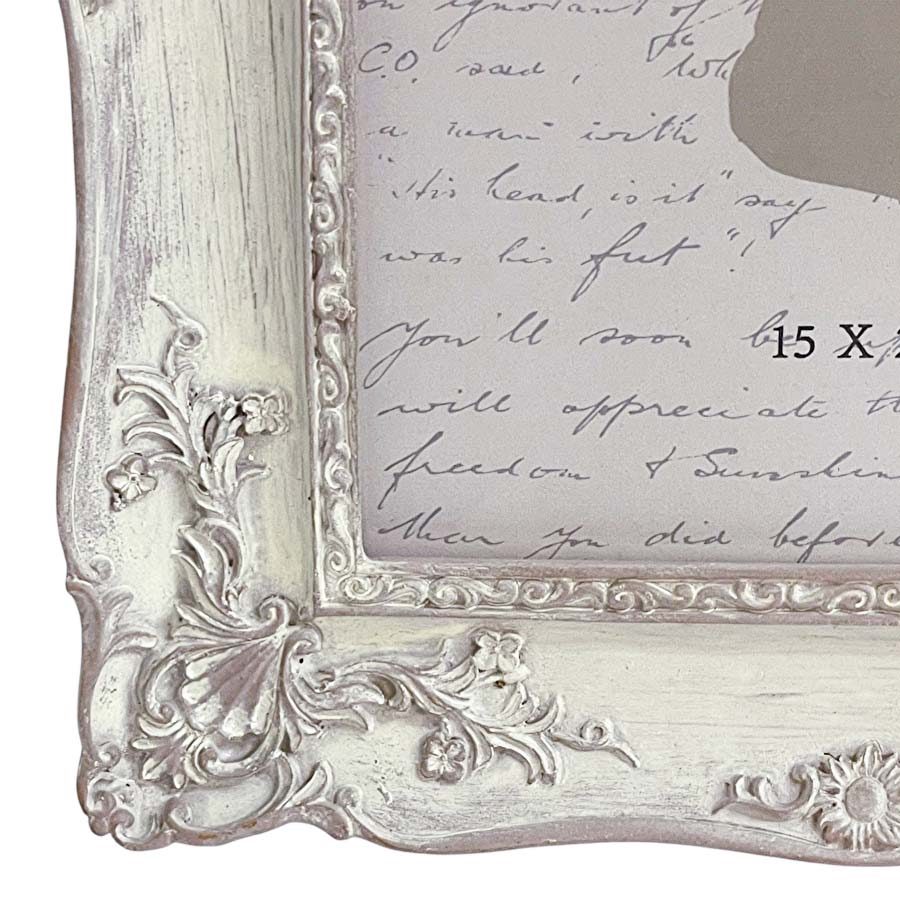 on ignorant of
C.O. said, "Wh
a man with
"His head, is it" say
was his feet"!
You'll soon be
15 X 2
will appreciate th
freedom & Sunshin
than you did before